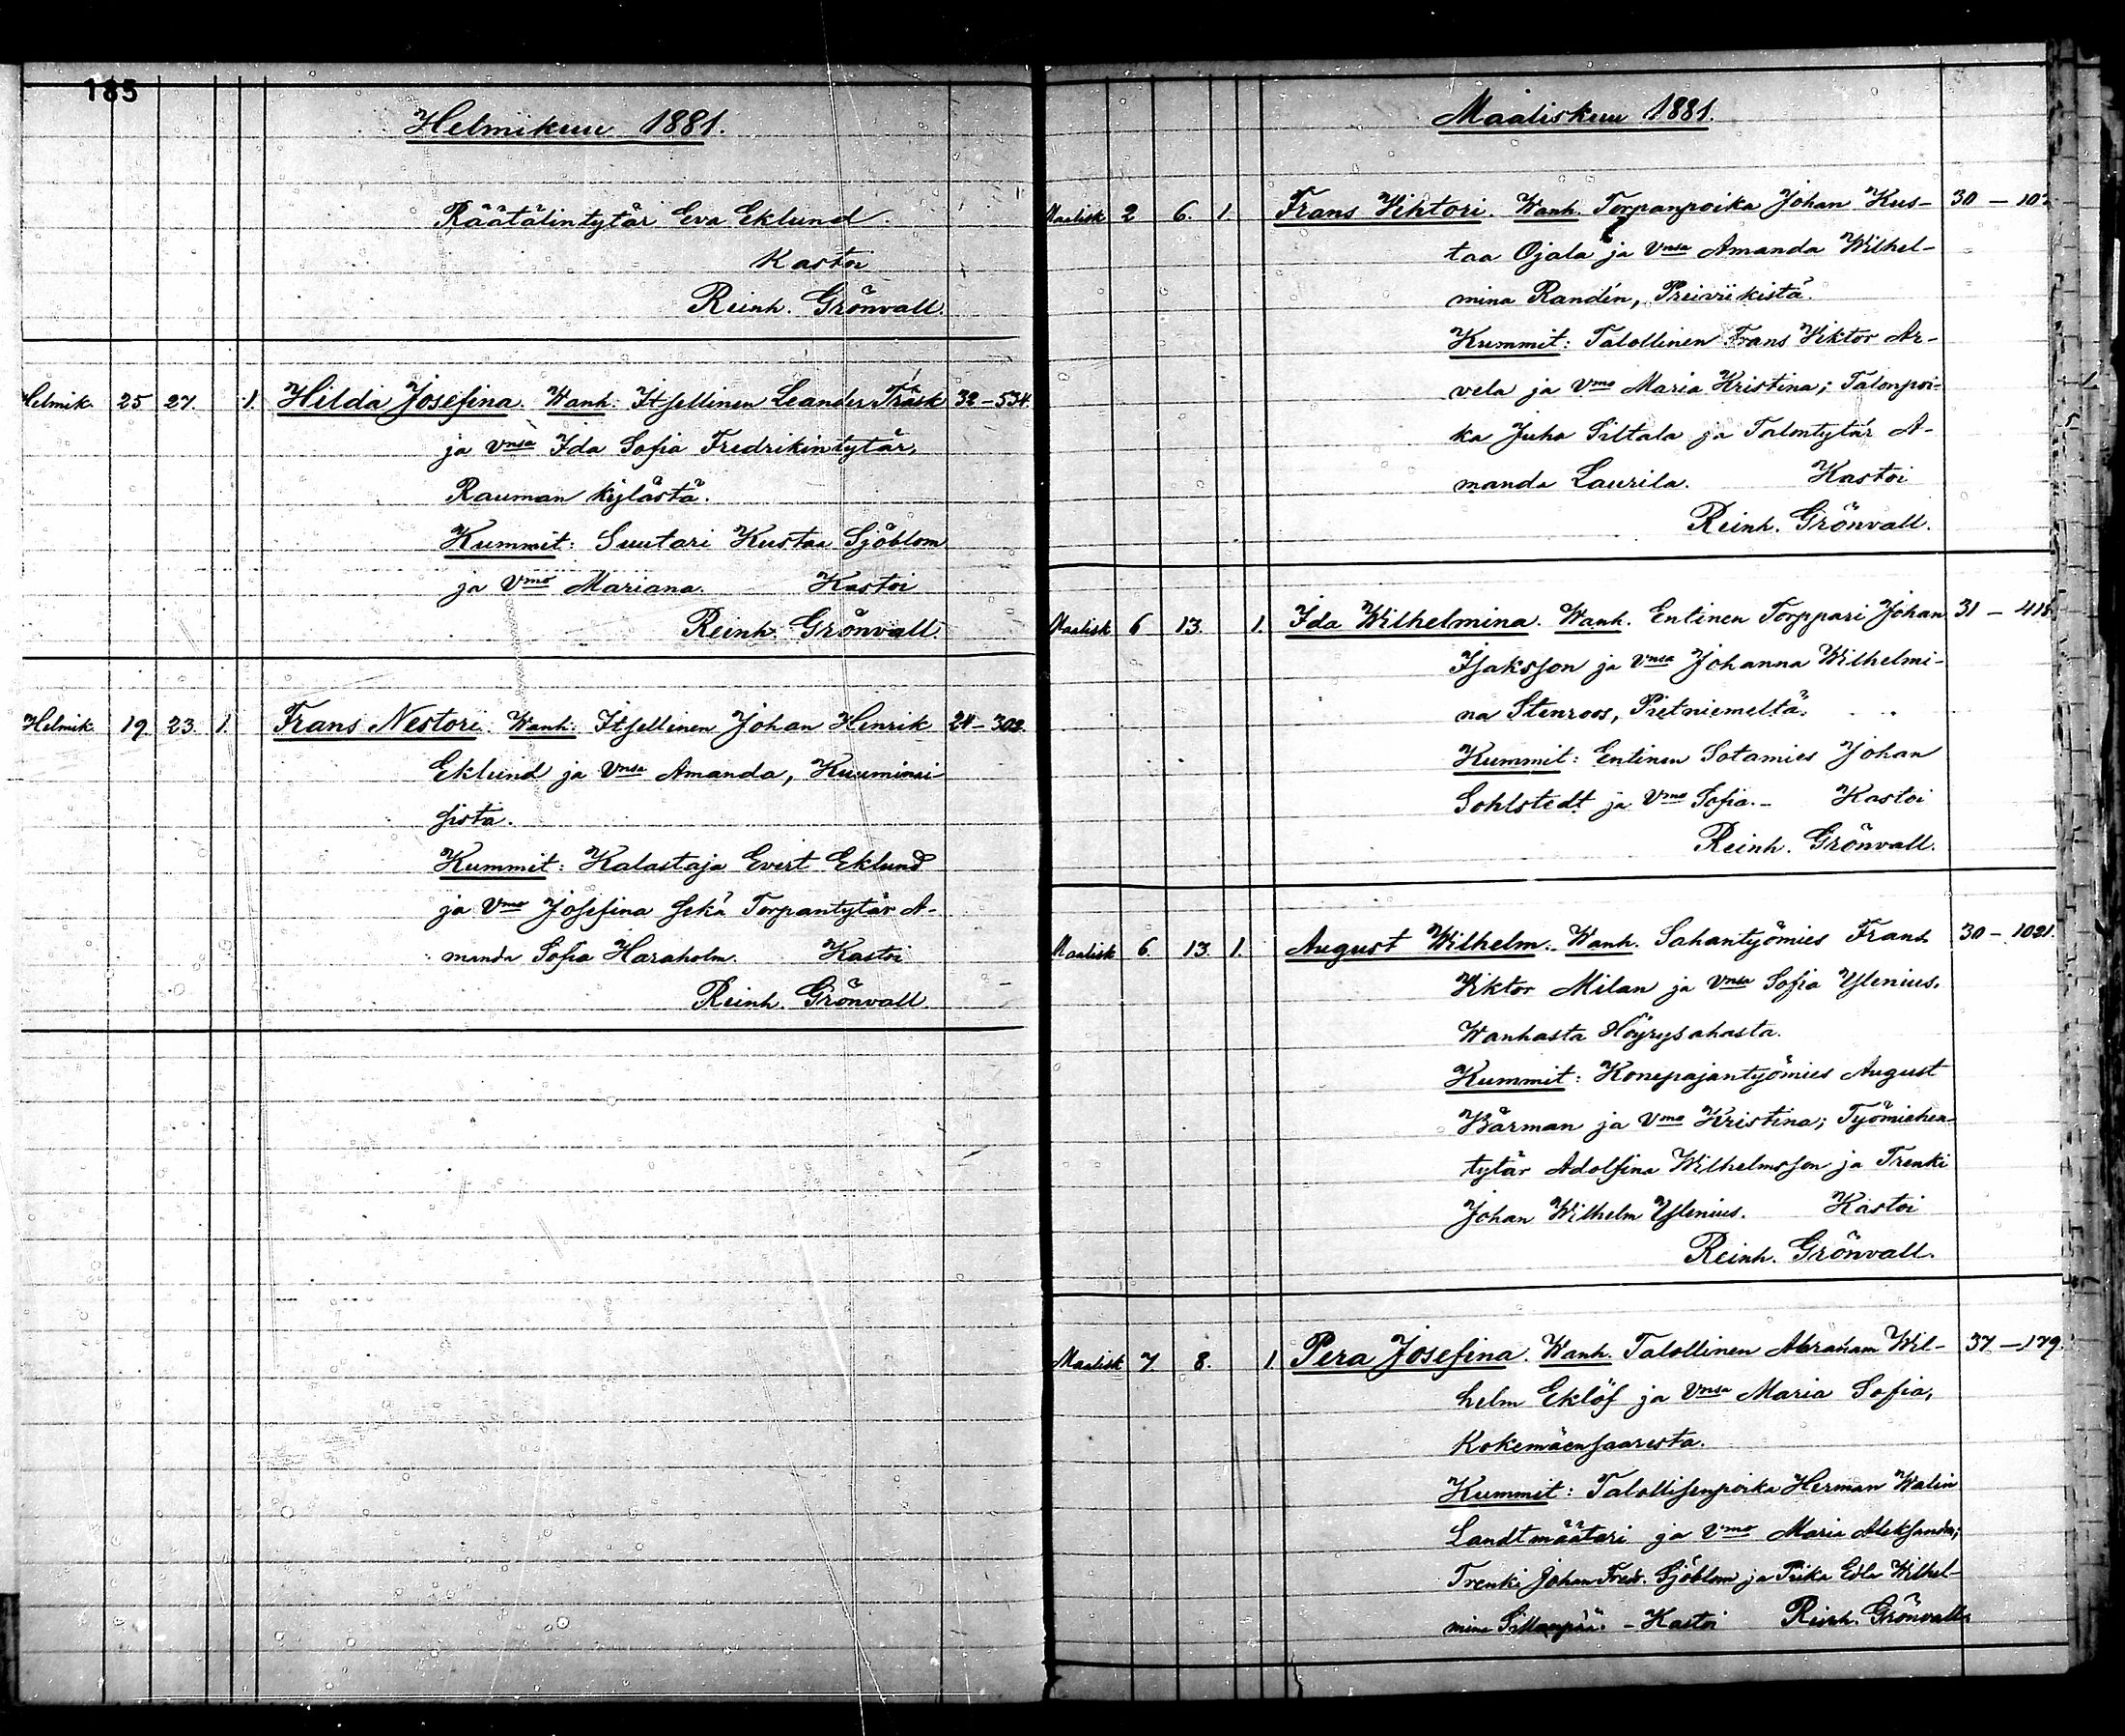 185
Helmikuu 1881.
Räätälintytär Eva Eklund.
Kastoi
Reinh. Grönvall.
Helmik. 25 27. 1. Hilda Josefina. Wanh: Itsellinen Leander Träsk 32-534.
ja Vnsa Ida Sofia Fredrikintytär,
Rauman kylästä.
Kummit: Suutari Kustaa Sjöblom
ja Vmo Mariana. Kastoi
Reinh. Grönvall
Helmik. 19. 23. 1. Frans Nestori. Wanh: Itsellinen Johan Henrik 24-302.
Eklund ja Vnsa Amanda, Kuuminai-
sista.
Kummit: Kalastaja Evert Eklund
ja Vmo Josefina sekä Torpantytär A-
manda Sofia Haraholm. Kastoi
Reinh. Grönvall
Maaliskuu 1881.
Maalisk 2 6. 1. Frans Wihtori. Wanh. Torpanpoika Johan Kus- 30 -
taa Ojala ja Vnsa Amanda Wilhel-
mina Randén, Preiviikistä.
Kummit: Talollinen Frans Viktor Ar-
vela ja Vmo Maria Kristina; Talonpoi-
ka Juho Siltala ja Talontytär A-
manda Laurila. Kastoi
Reinh. Grönvall.
Maalisk 6 13. 1. Ida Wilhelmina. Wanh. Entinen Torppari Johan 31 - 418.
Isaksson ja Vnsa Johanna Wilhelmi-
na Stenroos, Pietniemeltä.
Kummit: Entinen Sotamies Johan
Sohlstedt ja Vmo Sofia. - Kastoi
Reinh. Grönvall.
Maalisk 6. 13. 1. August Wilhelm. Wanh. Sahantyömies Frans 30 - 1021.
Viktor Milan ja Vnsa Sofia Ylenius,
Wanhasta Höyrysahasta.
Kummit: Konepajantyömies August
Wärman ja Vmo Kristina; Työmiehen-
tytär Adolfina Wilhelmsson ja Trenki
Johan Wilhelm Ylenius. Kastoi
Reinh. Grönvall.
Maalisk 7. 8. 1 Pera Josefina. Wanh. Talollinen Abraham Wil- 37 - 179.
helm Eklöf ja Vnsa Maria Sofia,
Kokemäensaaresta.
Kummit: Talollisenpoika Herman Walin
Landtmäätari ja Vmo Maria Aleksandra;
Trenki Johan Fredr. Sjöblom ja Piika Edla Wilhel-
mina Sillanpää. - Kastoi Reinh. Grönvall.